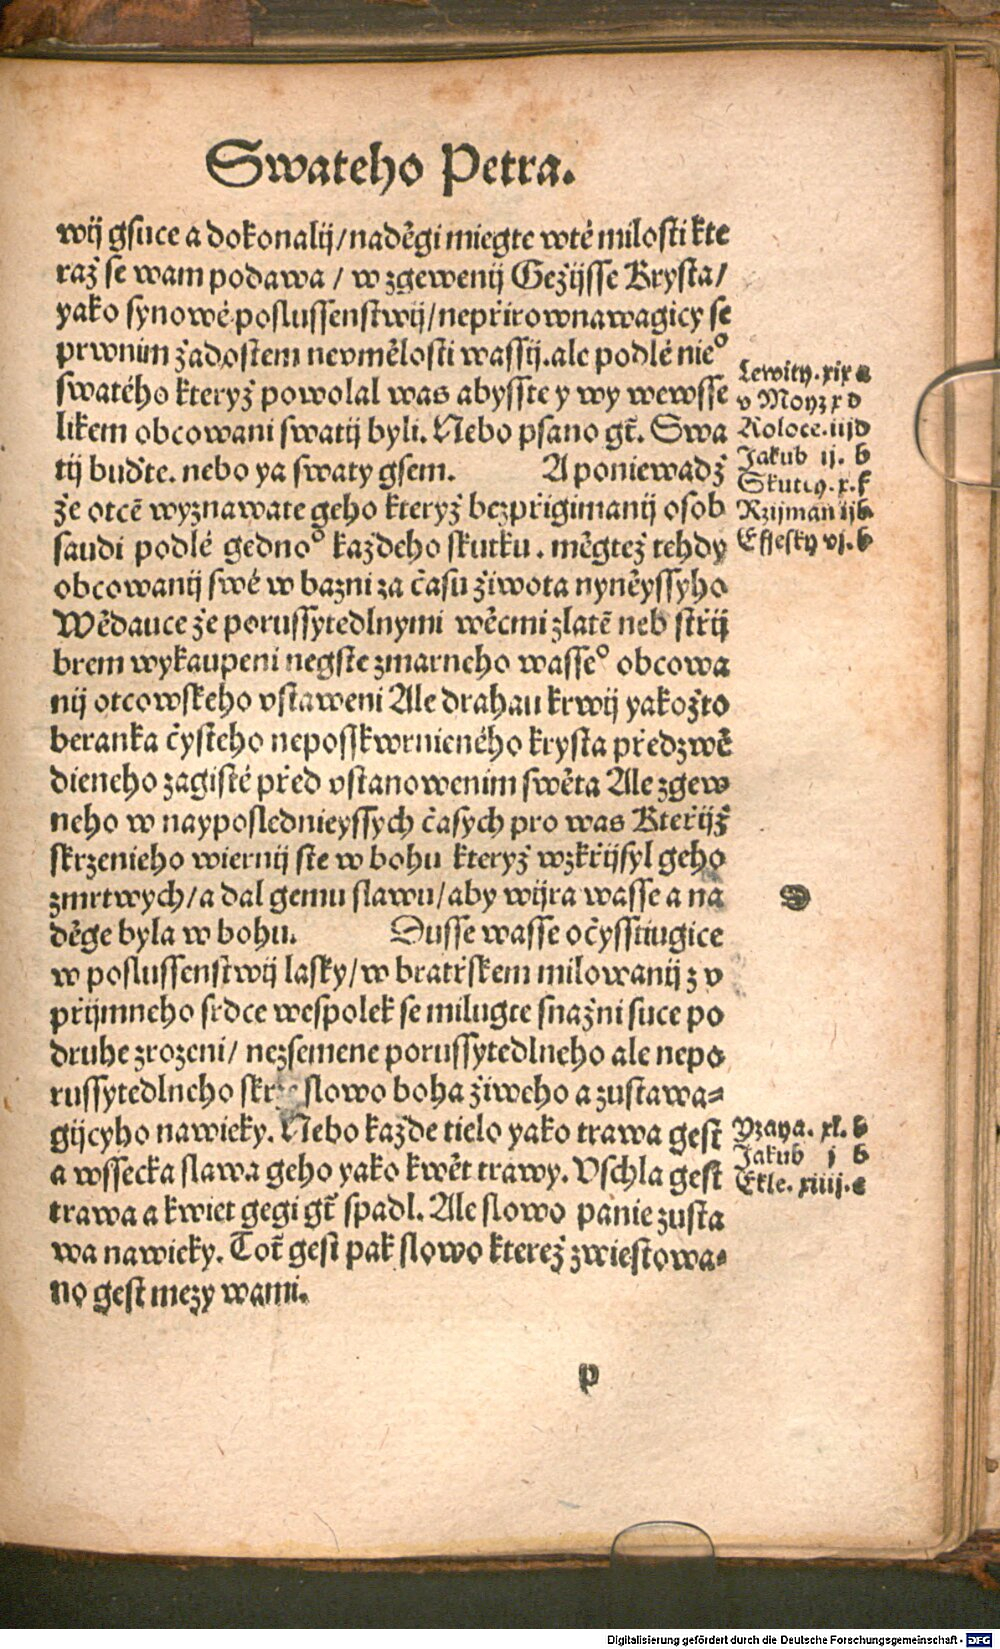 Swateho Petra.
wij gsuce a dokonalij/naděgi miegte wté milosti kte
raž se wam podawa / w zgewenij Gežijsse Krysta/
yako synowé poslussenstwij/nepřirownawagicy se
prwnim žadostem nevmělosti wassij.ale podlé nie°
swatého kteryž powolal was abysste y wy wewsse
likem obcowani swatij byli. Nebo psano gt̃. Swa
tij buďte. nebo ya swaty gsem. A poniewadž
že otcē wyznawate geho kteryž bezpřigimanij osob
saudi podlé gedno° každeho skutku. měgtež tehdy
obcowanij swé w bazni za času života nyněyssyho
Wědauce že porussytedlnymi wěcmi zlatē neb střij
brem wykaupeni negste zmarneho wasse° obcowa
nij otcowskeho vstaweni Ale drahau krwij yakožto
beranka čysteho neposskwrnieného krysta předzwě
dieneho zagisté před vstanowenim swěta Ale zgew
neho w nayposlednieyssych časych pro was Kteřijž
skrzenieho wiernij ste w bohu kteryž wzkřijsyl geho
zmrtwych/a dal gemu slawu/aby wijra wasse a na
děge byla w bohu. Dusse wasse očysstiugice
w poslussenstwij lasky/w bratřskem milowanij z v
přijmneho srdce wespolek se milugte snažni suce po
druhe zrozeni/ nezsemene porussytedlneho ale nepo
russytedlneho skrze slowo boha živeho a zustawa=
gijcyho nawieky. Nebo každe tielo yako trawa gest
a wssecka slawa geho yako kwět trawy. Vschla gest
trawa a kwiet gegi gt̃ spadl. Ale slowo panie zusta
wa nawieky. Tot̃ gest pak slowo kterež zwiestowa=
no gest mezy wami.
Lewity. xix a
v Moyz x d
Koloce. iij d
Jakub ij. b
Skutcy. x. f
Rzijman ij b
Effesky vj. b
D
Yzaya. xl. b
Jakub j b
Ekle. xiiij. c
p
Digitalisierung gefördert durch die Deutsche Forschungsgemeinschaft - DFG